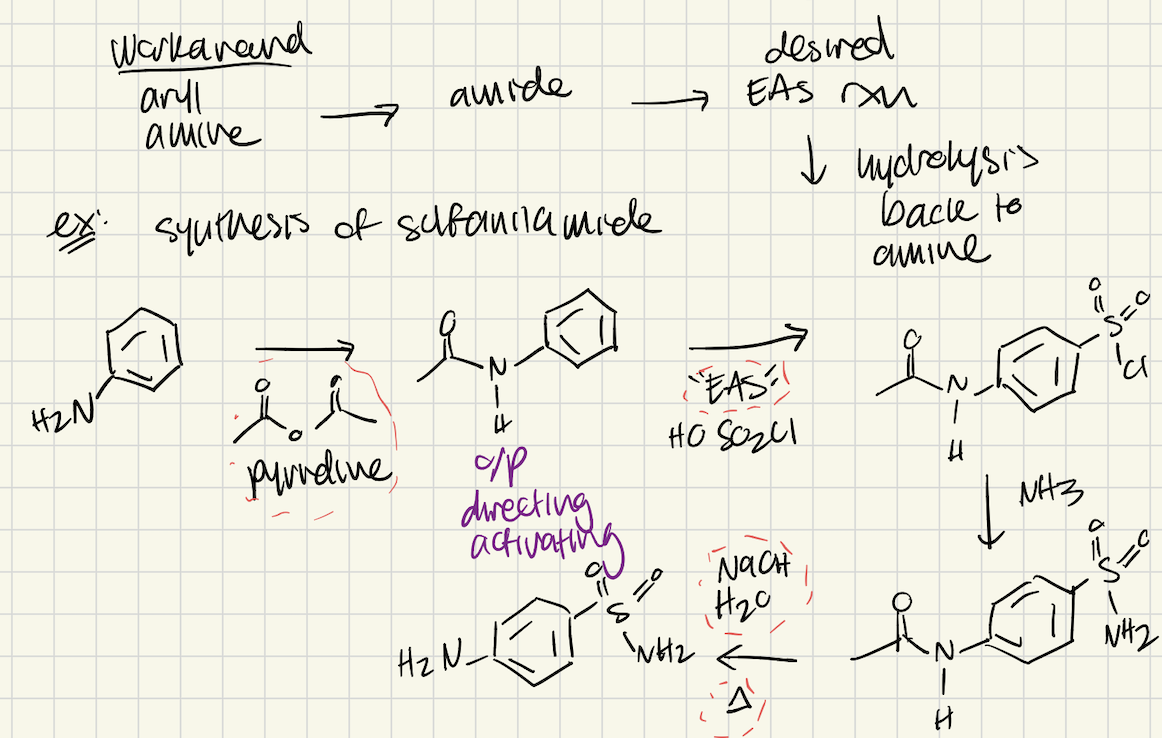 workaround
aryl
amine
→ amide →
desired
EAS rxn
↓ hydrolysis
back to
amine
ex: synthesis of sulfanilamide
H2N
O O
O
pyridine
O
N
H
o/p
directing
activating
"EAS"
HO SO2Cl
O O
S
Cl
O
N
H
NH3
O O
S
NH2
O
N
H
NaOH
H2O
Δ
O O
S
NH2
H2N